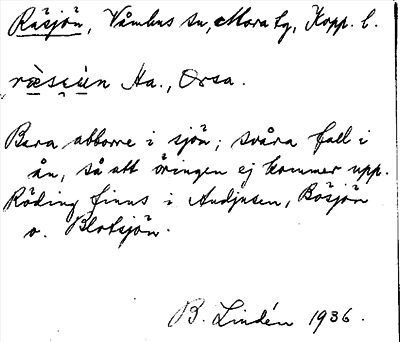 Råsjön, Våmhus sn, Mora tg, Kopp. l.
ræ̀sɛu̇̀n Ha., Orsa.
Bara abborre i sjön; svåra fall i
ån, så att öringen ej kommer upp.
Röding finns i Andjusen, Bösjön
o. Blotsjön.
B. Lindén 1936.